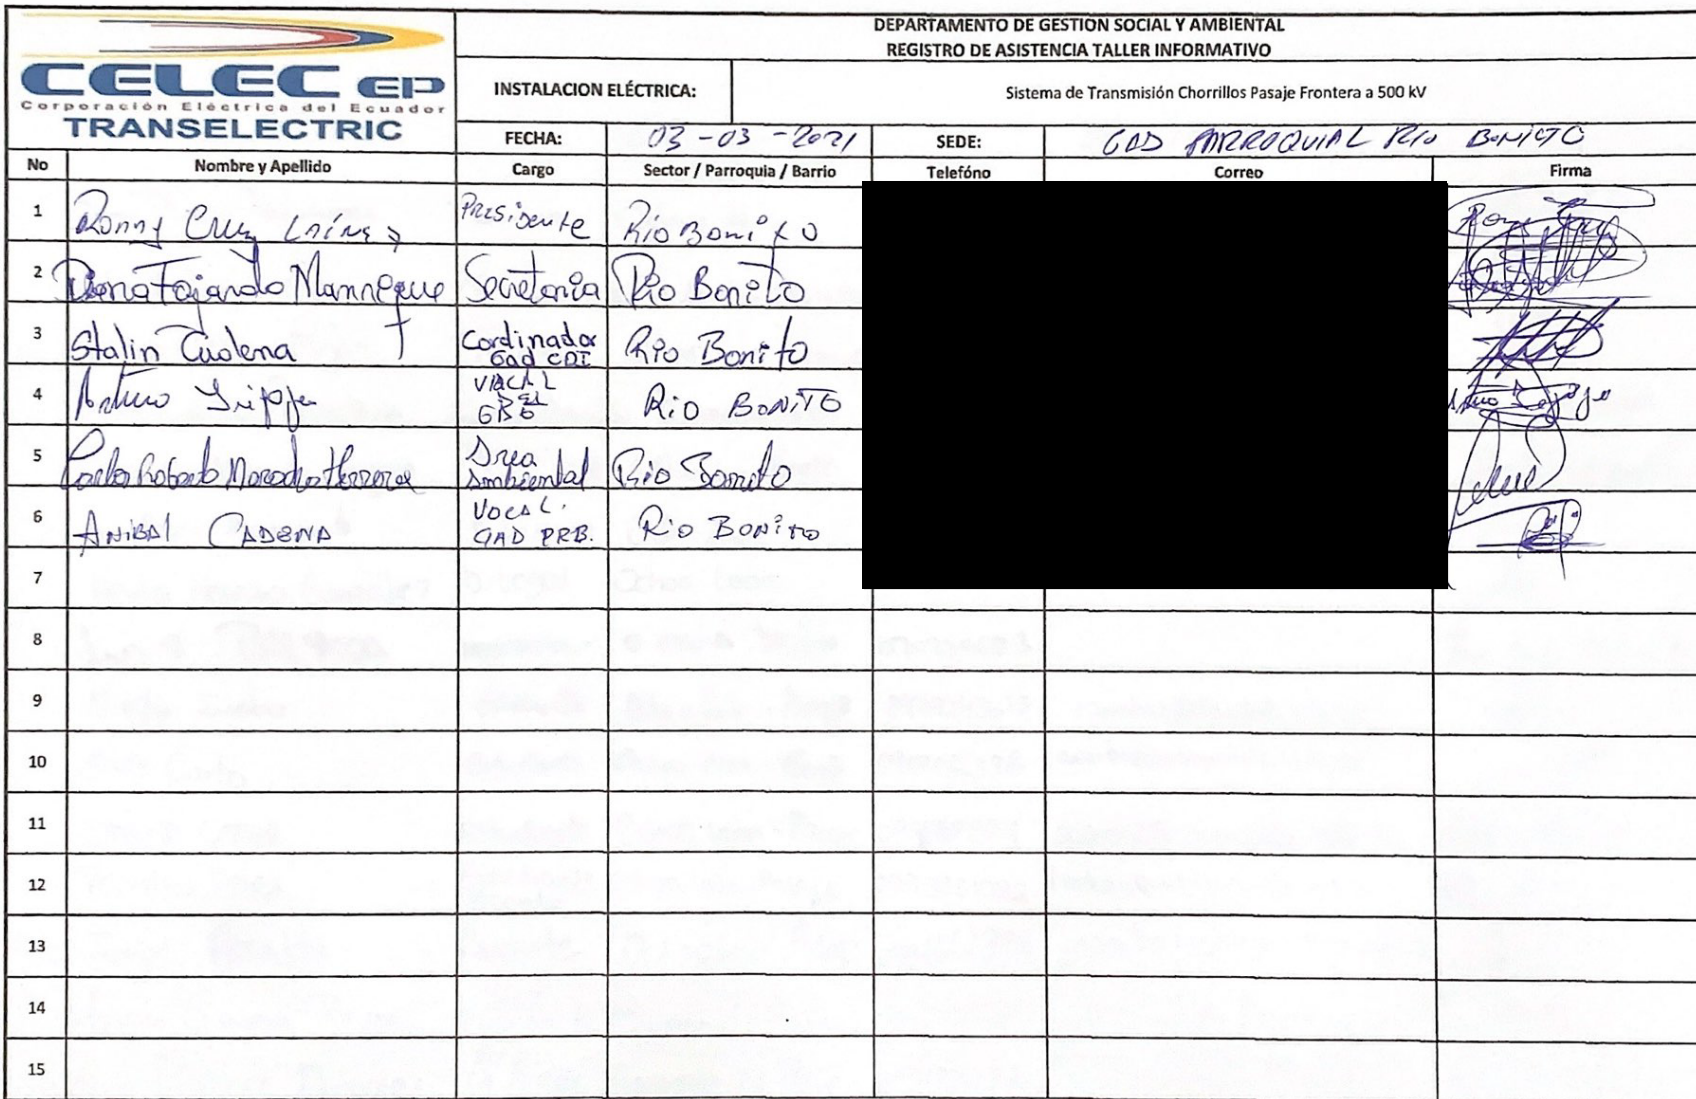 CELEC EP
Corporación Eléctrica del Ecuador
TRANSELECTRIC
DEPARTAMENTO DE GESTION SOCIAL Y AMBIENTAL
REGISTRO DE ASISTENCIA TALLER INFORMATIVO
INSTALACION ELÉCTRICA: Sistema de Transmisión Chorrillos Pasaje Frontera a 500 kV
FECHA: 03-03-2021 SEDE: GAD PARROQUIAL RIO BONITO
No Nombre y Apellido Cargo Sector / Parroquia / Barrio Telefóno Correo Firma
1 Ronny Cruz Presidente Rio Bonito
2 Diana Fajardo Manrique Secretaria Rio Bonito
3 Stalin Cadena Cordinador Gad CDI Rio Bonito
4 Arturo DEL Rio BONITO
5 Carlos Roberto Herrera Area Ambiental Rio Bonito
6 ANIBAL CADENA VOCAL. GAD PRB. Rio BONITO
7
8
9
10
11
12
13
14
15